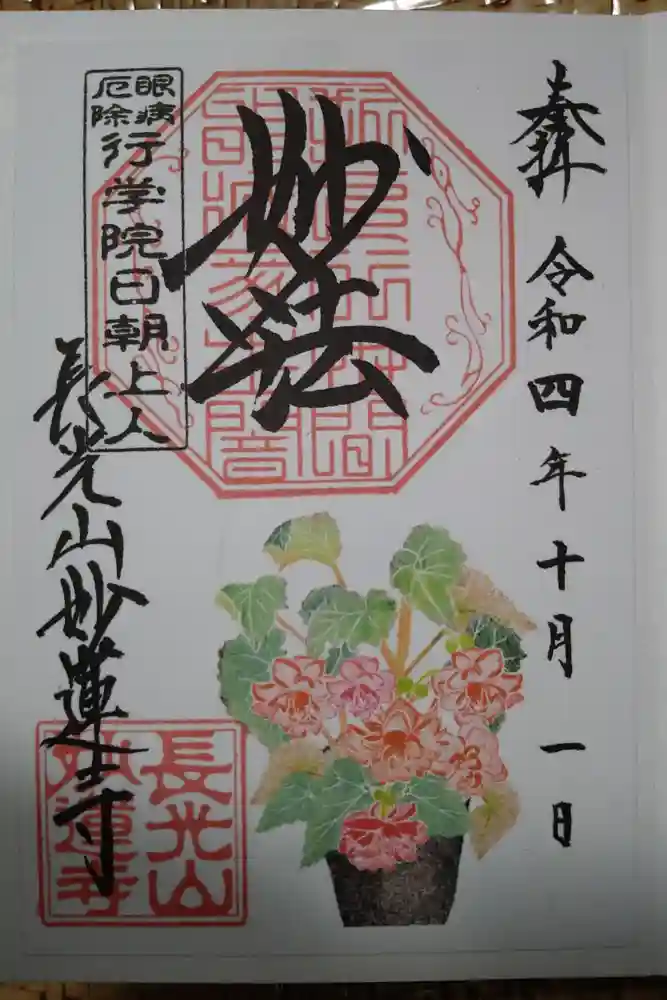 奉拝 令和四年十月一日
妙法
眼病
厄除
行学院日朝上人
長光山妙蓮寺
長光山
妙蓮寺